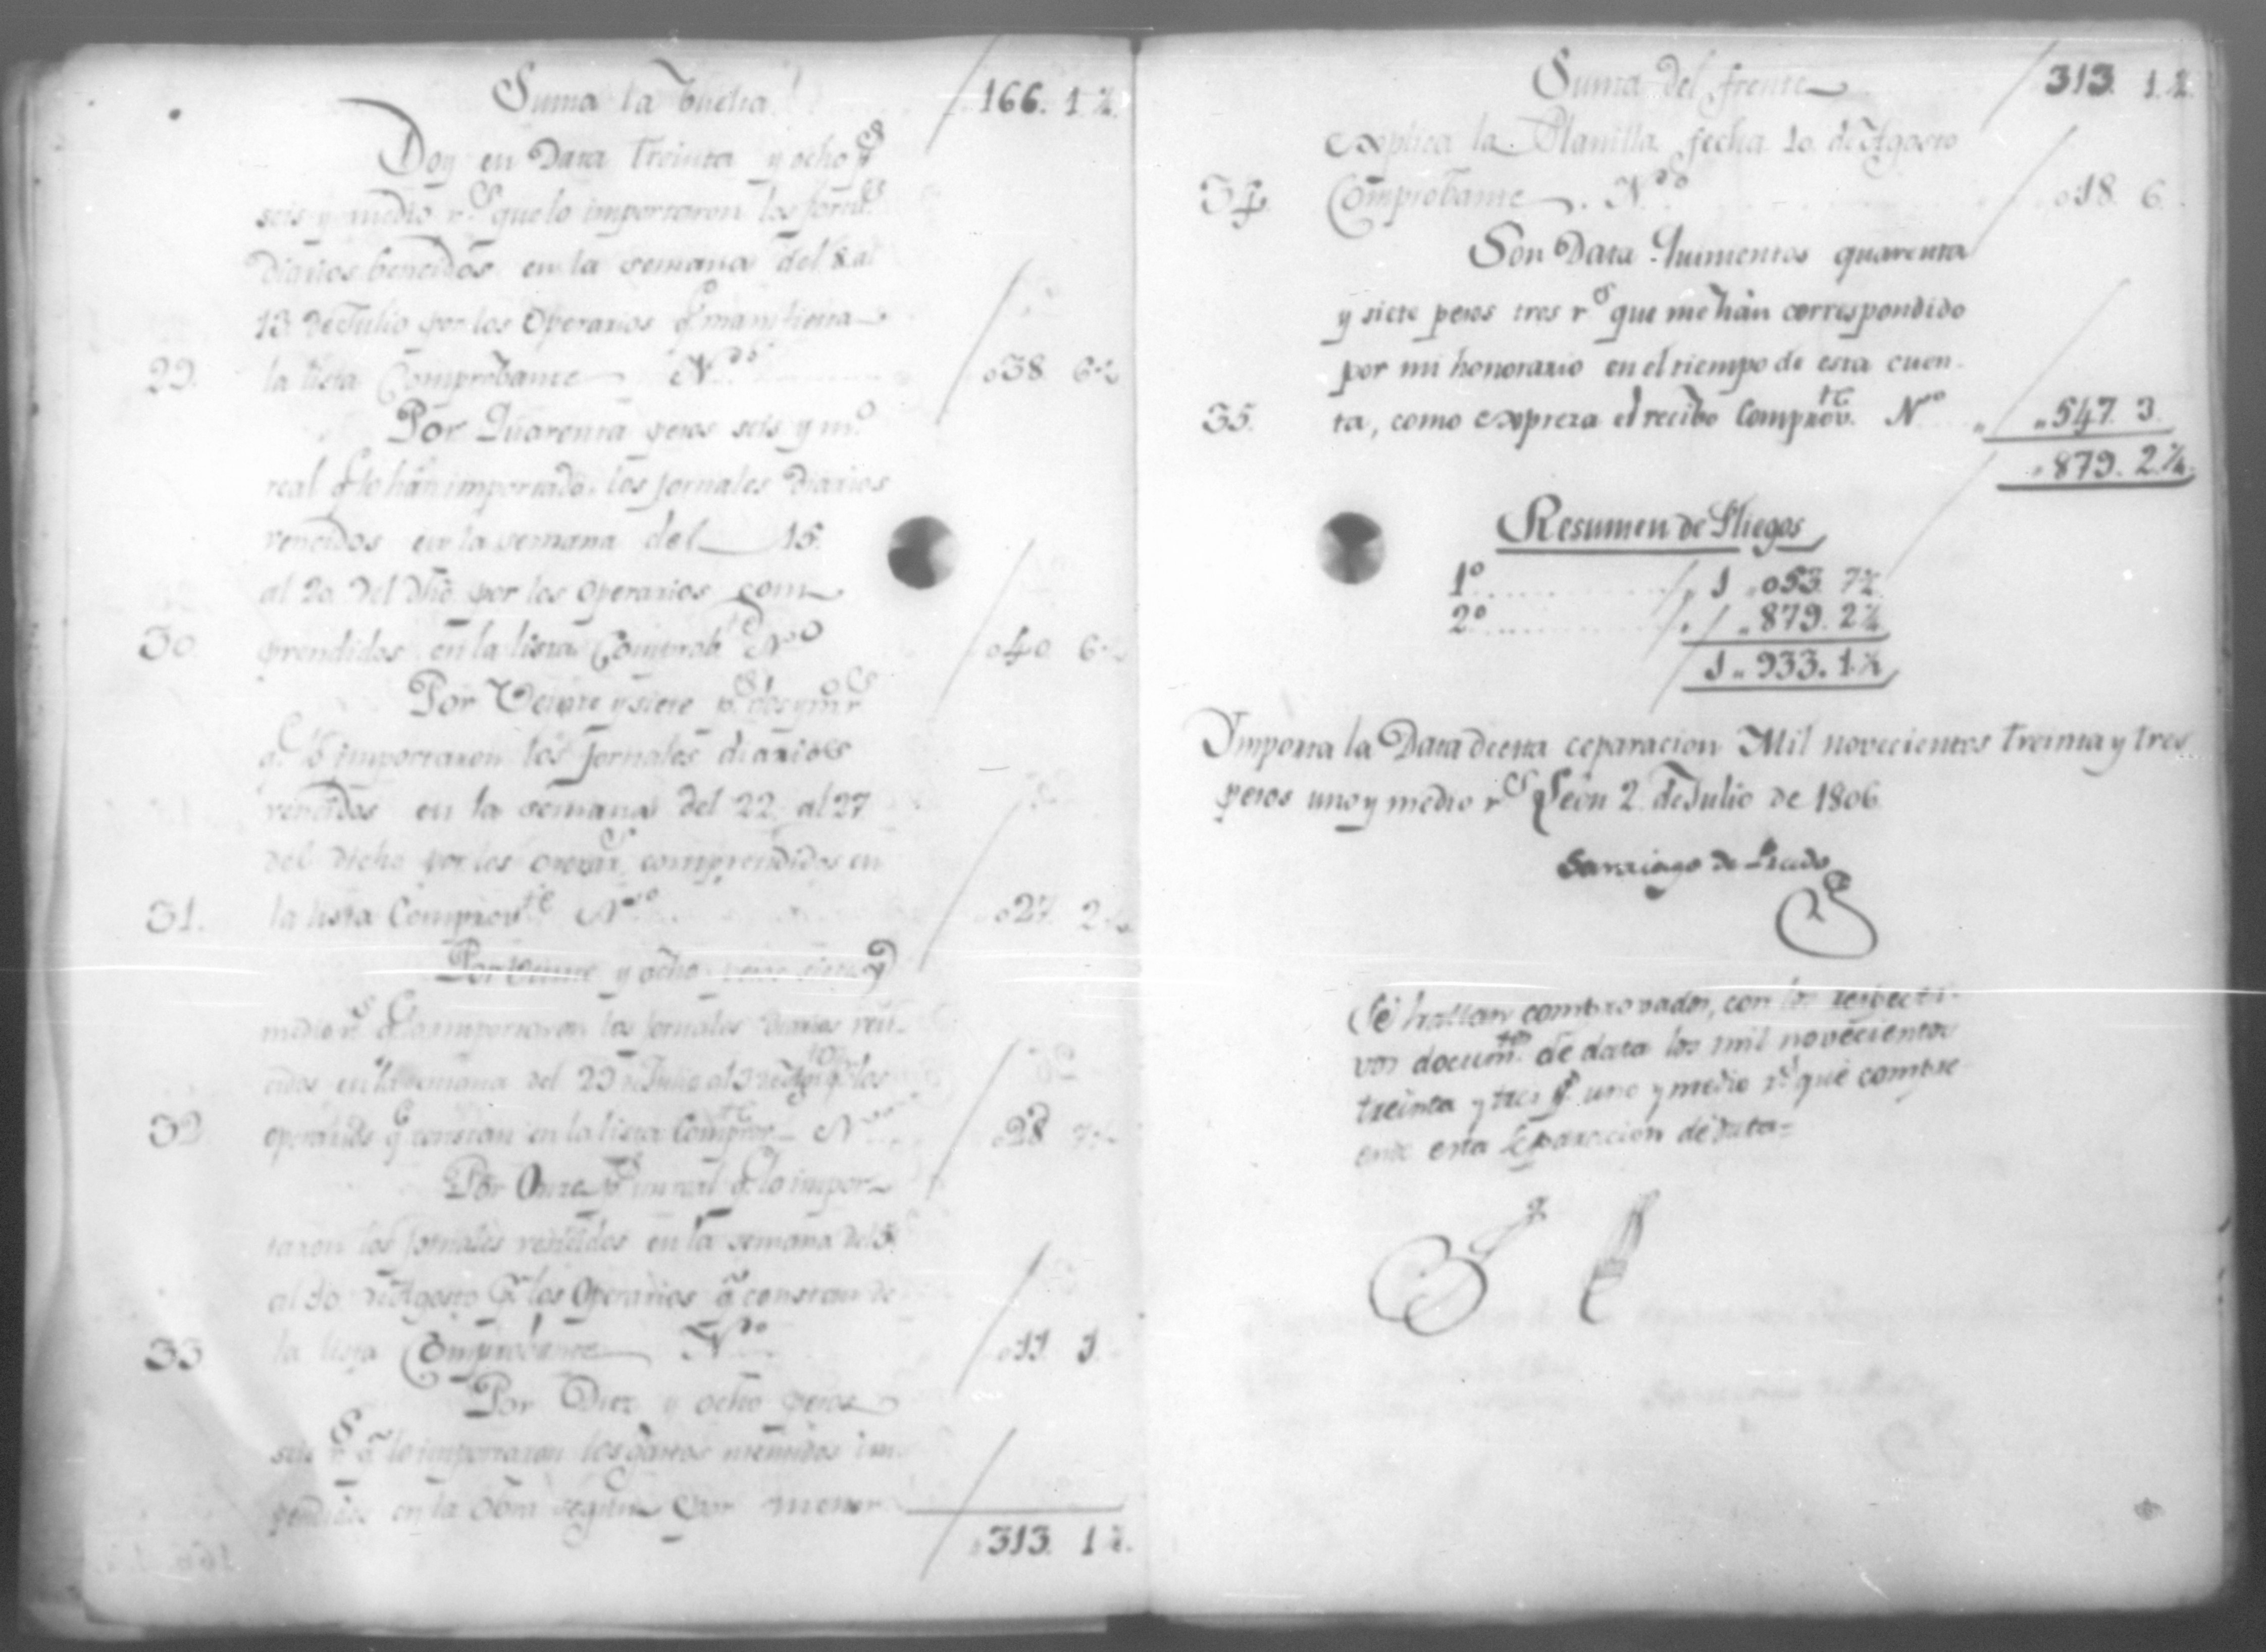 Suma la buelta 166. 1 ½.
Doy en Data treinta y ocho ps
seis y medio rs que lo importaron los jornals
diarios bencidos en la semana del 8 al
13 de Julio por los Operarios q manifiesta
29. la lista Comprobante No 038 6½
Por Quarenta pesos seis y mo
real q lo hán importado los jornales diarios
vencidos en la semana del 15
al 20 del dho por los Operarios com
30 prendidos en la lista Comprobte No 040 6½
Por Veinte y siete ps dos y mo rs
qe lo importaron los jornales diarios
vencidos en la semana del 22 al 27
del dicho por los operars comprendidos en
31. la lista Comprovte No 027 2½
Por Veinte y ocho pesos siete y
medio rs q lo importaron los jornales diarios ven-
cidos en la semana del 29 de Julio al 3 de Agto pr los
32 operarios q constan en la lista Comprovte No 028 7½
Por Onze ps un real q lo impor-
taron los jornales vencidos en la semana del 5
al 10 de Agosto pr los Operarios q constan de
33 la lista Comprobante No 011 1
Por Diez y ocho pesos
seis rs q lo importaron los gastos menudos im-
pendidos en la Obra segun por menor
313. 1 ½.
Suma del frente 313 1.½
explica la Planilla fecha 10 de Agosto
34. Comprobante No 018 6.
Son Data Quinientos quarenta
y siete pesos tres rs que me hán correspondido
por mi honorario en el tiempo de esta cuen-
35. ta, como expreza el recibo Comprovte No 547. 3.
879. 2.½.
Resumen de Pliegos
1o 1 053 7½
2o 879. 2½
1 933. 1.½
Importa la Data de esta ceparacion Mil novecientos treinta y tres
pesos uno y medio rs Leon 2. de Julio de 1806.
Santiago de Prado
Se hallan comprovados, con los respecti-
vos documtos de data los mil novecientos
treinta y tres ps uno y medio rs que compre-
ende esta separacion de data=